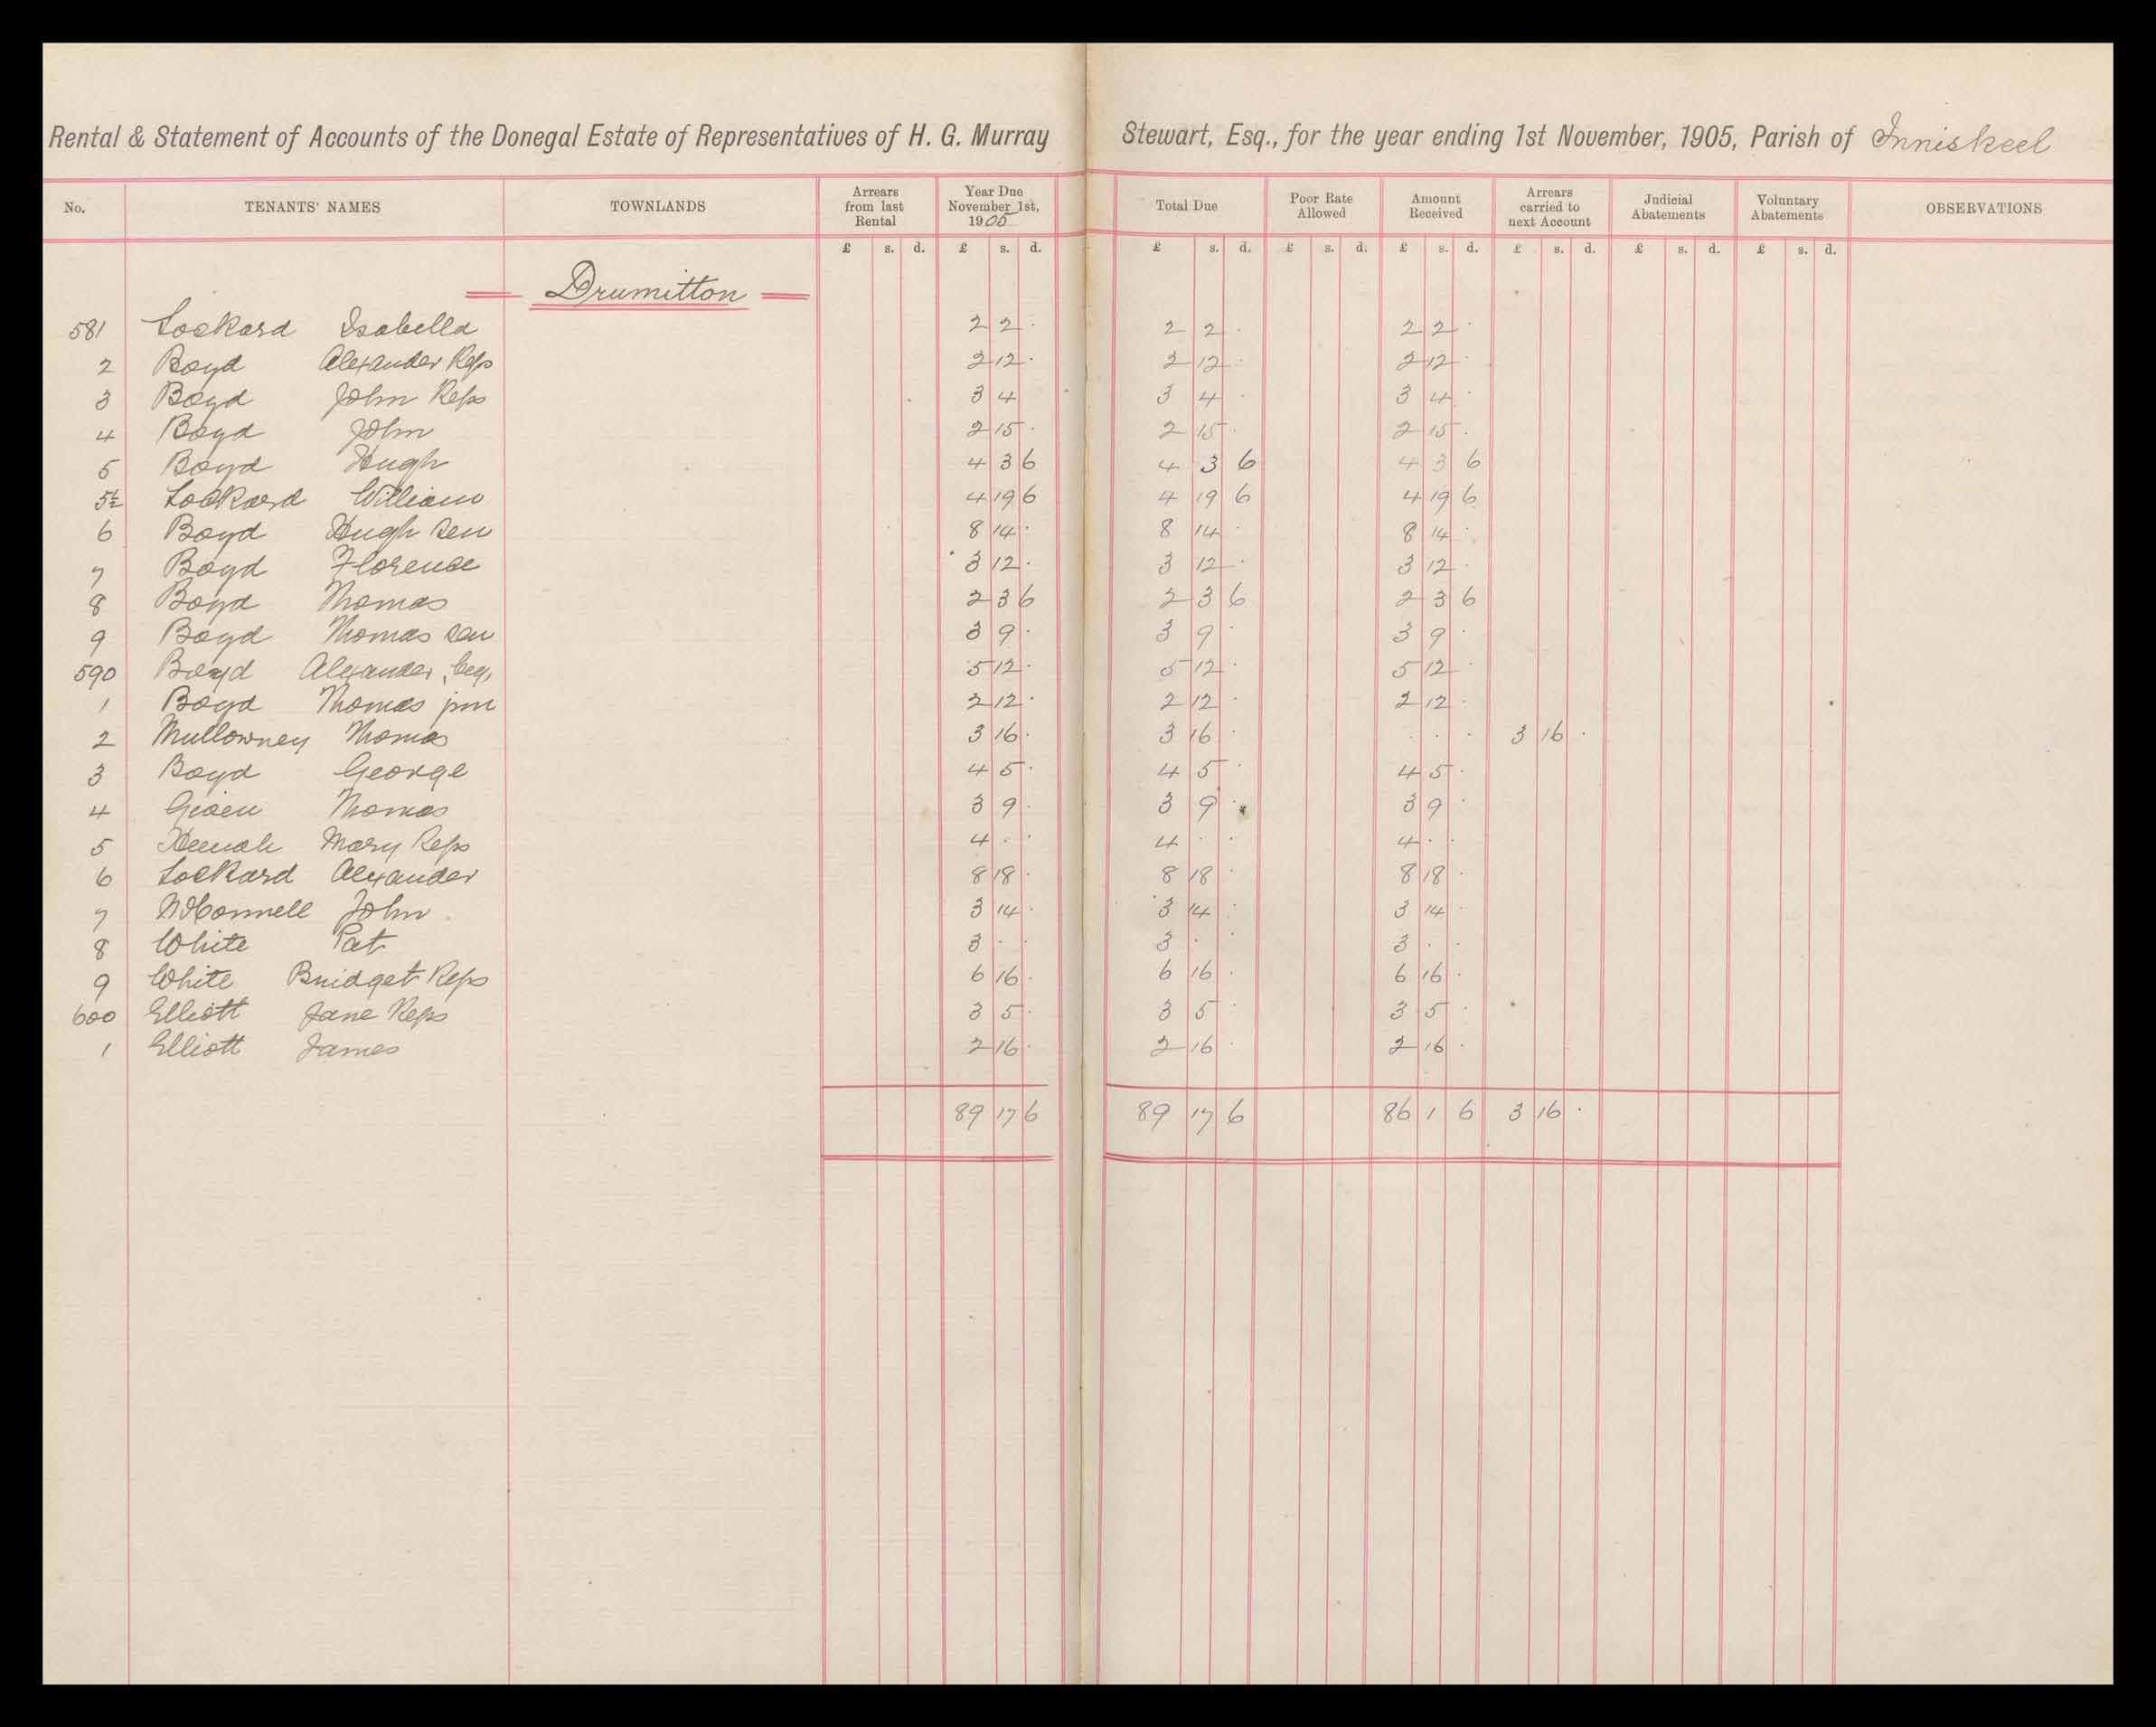 Rental & Statement of Accounts of the Donegal Estate of Representatives of H. G. Murray Stewart, Esq., for the year ending 1st November, 1905, Parish of Inniskeel
No. TENANTS' NAMES TOWNLANDS Arrears from last Rental Year Due November 1st, 1905 Total Due Poor Rate Allowed Amount Received Arrears carried to next Account Judicial Abatements Voluntary Abatements OBSERVATIONS
£ s. d. £ s. d. £ s. d. £ s. d. £ s. d. £ s. d. £ s. d. £ s. d.
Drumitton
581 Lockard Isabella 2 2 . 2 2 . 2 2 .
2 Boyd Alexander Reps 2 12 . 2 12 . 2 12 .
3 Boyd John Reps 3 4 3 4 . 3 4 .
4 Boyd John 2 15 . 2 15 . 2 15 .
5 Boyd Hugh 4 3 6 4 3 6 4 3 6
5½ Lockard William 4 19 6 4 19 6 4 19 6
6 Boyd Hugh sen 8 14 . 8 14 . 8 14 .
7 Boyd Florence 3 12 . 3 12 . 3 12 .
8 Boyd Thomas 2 3 6 2 3 6 2 3 6
9 Boyd Thomas sen 3 9 . 3 9 . 3 9 .
590 Boyd Alexander 5 12 . 5 12 . 5 12 .
1 Boyd Thomas jun 2 12 . 2 12 . 2 12 .
2 Mullowney Thomas 3 16 . 3 16 . . . . 3 16 .
3 Boyd George 4 5 . 4 5 . 4 5 .
4 Thomas 3 9 . 3 9 . 3 9 .
5 Mary Reps 4 . . 4 . . 4 . .
6 Lockard Alexander 8 18 . 8 18 . 8 18 .
7 McConnell John 3 14 . 3 14 . 3 14 .
8 White Pat 3 . . 3 . . 3 . .
9 White Bridget Reps 6 16 . 6 16 . 6 16 .
600 Elliott Jane Reps 3 5 . 3 5 . 3 5 .
1 Elliott James 2 16 . 2 16 . 2 16 .
89 17 6 89 17 6 86 1 6 3 16 .